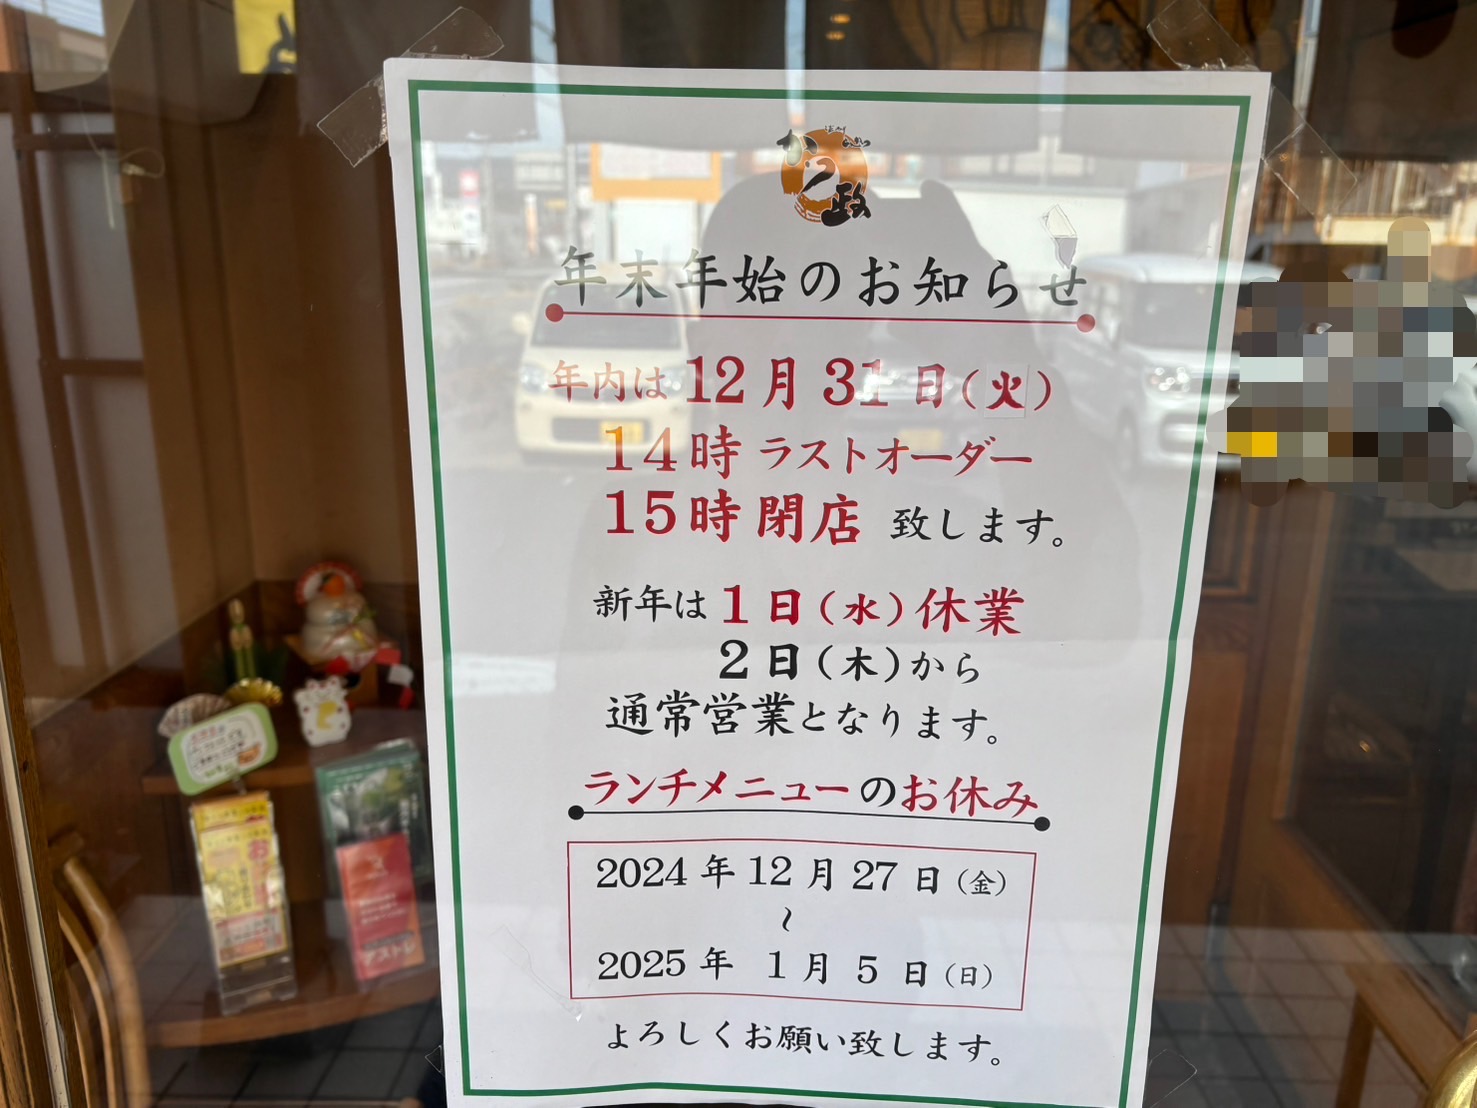 かつ政
年末年始のお知らせ
年内は 12月 31日(火)
14時 ラストオーダー
15時 閉店 致します。
新年は 1日(水)休業
2日(木)から
通常営業となります。
ランチメニューのお休み
2024年 12月 27日(金)
~
2025年 1月 5日(日)
よろしくお願い致します。